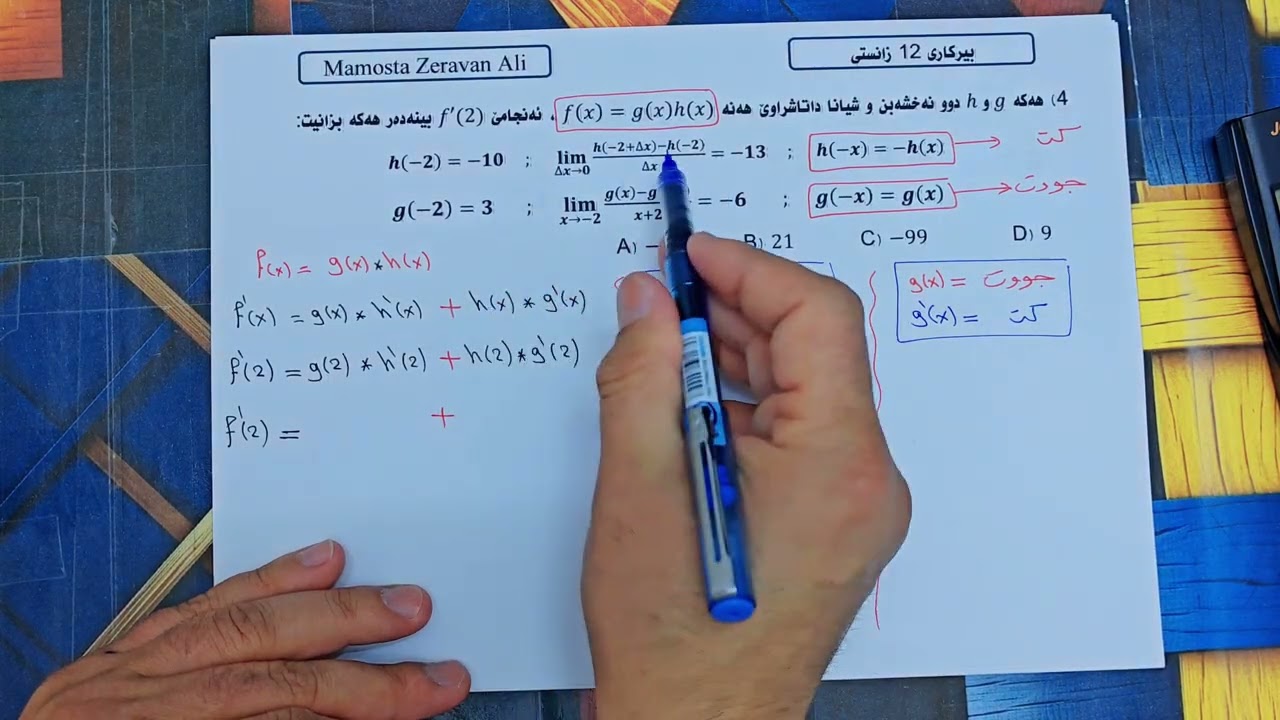 Mamosta Zeravan Ali
بیرکاری 12 زانستی
4) هەکە g و h دوو نەخشەبن و شیانا داتاشراوێ هەنە f(x) = g(x)h(x) ، ئەنجامێ f′(2) بینەدەر هەکە بزانیت:
h(−2) = −10 ; lim Δx→0 h(−2+Δx)−h(−2) / Δx = −13 ; h(−x) = −h(x) → کت
g(−2) = 3 ; lim x→−2 g(x)−g / x+2 = −6 ; g(−x) = g(x) → جووت
A) − B) 21 C) −99 D) 9
f(x) = g(x)*h(x)
f'(x) = g(x)*h'(x) + h(x)*g'(x)
f'(2) = g(2)*h'(2) + h(2)*g'(2)
f'(2) = +
g(x) = جووت
g'(x) = کت